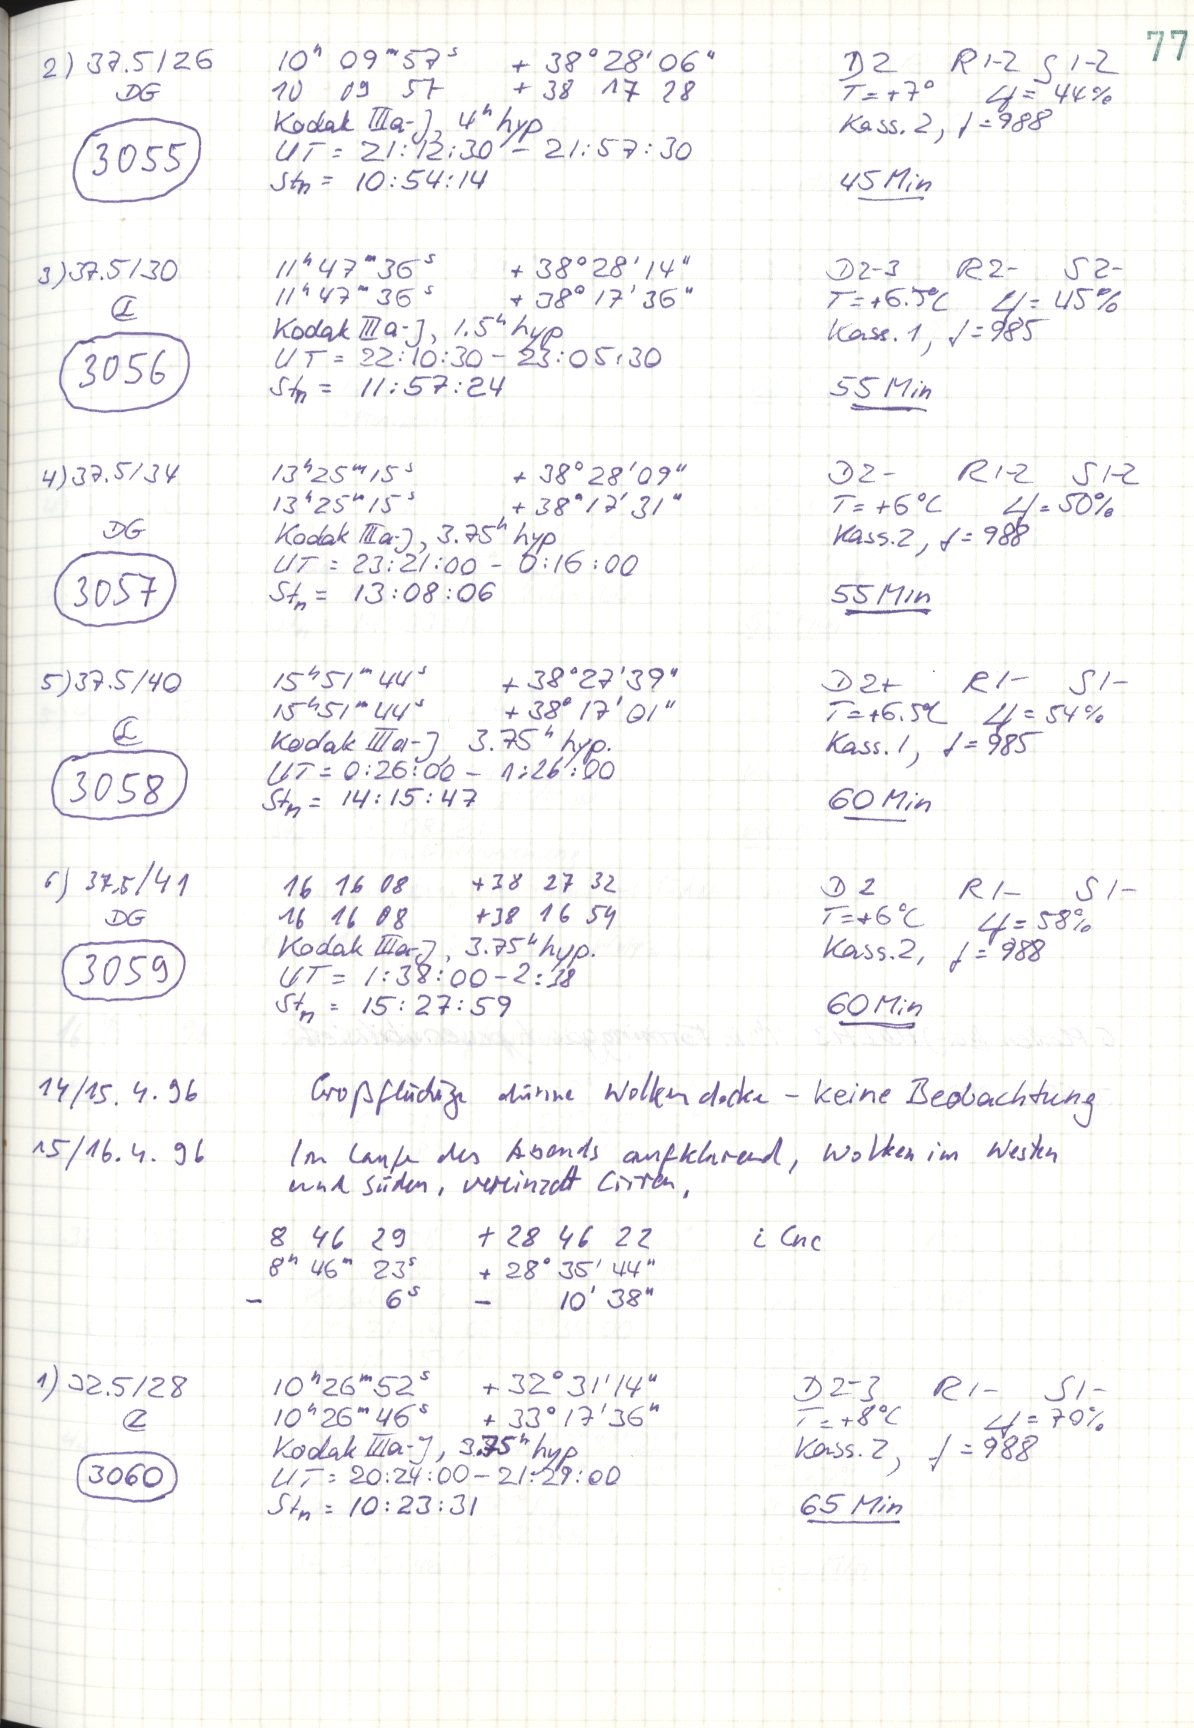 77
2) 37.5/26 10ʰ 09ᵐ 57ˢ + 38° 28' 06" D2 R1-2 S1-2
DG 10 09 57 + 38 17 28 T = +7° φ = 44%
3055 Kodak IIIa-J, 4ʰ hyp Kass. 2, f = 988
UT = 21:12:30 – 21:57:30
Stₙ = 10:54:14 45 Min
3) 37.5/30 11ʰ 47ᵐ 36ˢ + 38° 28' 14" D2-3 R2- S2-
11ʰ 47ᵐ 36ˢ + 38° 17' 36" T = +6.5°C φ = 45%
3056 Kodak IIIa-J, 1.5ʰ hyp Kass. 1, f = 985
UT = 22:10:30 – 23:05:30
Stₙ = 11:57:24 55 Min
4) 37.5/34 13ʰ 25ᵐ 15ˢ + 38° 28' 09" D2- R1-2 S1-2
13ʰ 25ᵐ 15ˢ + 38° 17' 31" T = +6°C φ = 50%
DG Kodak IIIa-J, 3.75ʰ hyp Kass. 2, f = 988
UT = 23:21:00 – 0:16:00
3057 Stₙ = 13:08:06 55 Min
5) 37.5/40 15ʰ 51ᵐ 44ˢ + 38° 27' 39" D2+ R1- S1-
15ʰ 51ᵐ 44ˢ + 38° 17' 01" T = +6.5°C φ = 54%
Kodak IIIa-J, 3.75ʰ hyp. Kass. 1, f = 985
3058 UT = 0:26:00 – 1:26:00
Stₙ = 14:15:47 60 Min
6) 37.5/41 16 16 08 +38 27 32 D2 R1- S1-
DG 16 16 08 +38 16 54 T = +6°C φ = 58%
3059 Kodak IIIa-J, 3.75ʰ hyp. Kass. 2, f = 988
UT = 1:38:00 – 2:38
Stₙ = 15:27:59 60 Min
14/15. 4. 96 Großflächige dünne Wolkendecke – keine Beobachtung
15/16. 4. 96 Im Laufe des Abends aufklarend, Wolken im Westen
und Süden, vereinzelt Cirren,
8 46 29 + 28 46 22 i Cnc
8ʰ 46ᵐ 23ˢ + 28° 35' 44"
– 6ˢ – 10' 38"
1) 32.5/28 10ʰ 26ᵐ 52ˢ + 32° 31' 14" D2-3 R1- S1-
10ʰ 26ᵐ 46ˢ + 33° 17' 36" T = +8°C φ = 70%
3060 Kodak IIIa-J, 3.75ʰ hyp Kass. 2, f = 988
UT = 20:24:00 – 21:29:00
Stₙ = 10:23:31 65 Min